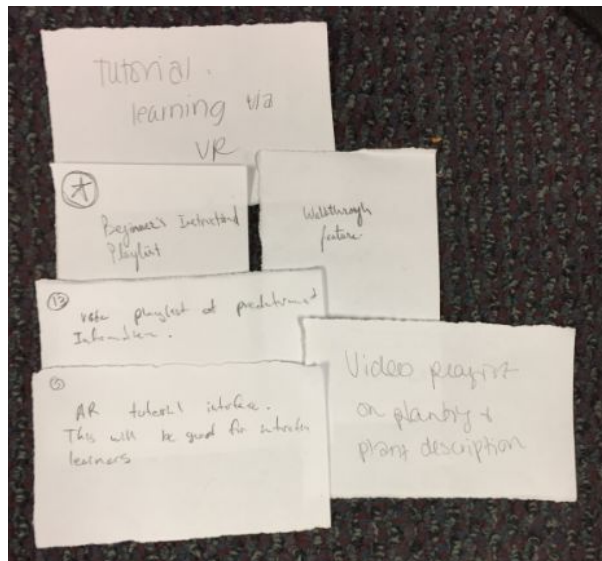 Tutorial.
learning via
VR
Beginner's Instructional
Playlist
Walkthrough
feature
13
playlist of predetermined
Information.
5
AR tutorial interface.
This will be good for
learners
Video playlist
on planting &
plant description